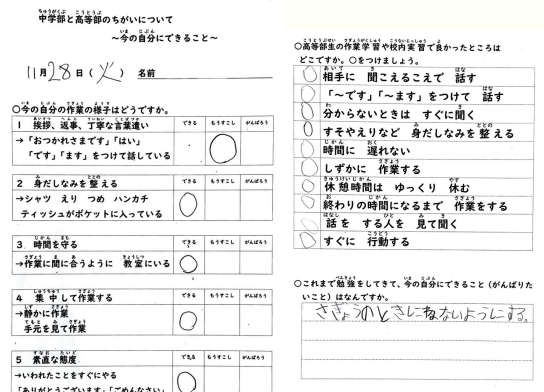 中学部と高等部のちがいについて
～今の自分にできること～
11月28日(火) 名前
○今の自分の作業の様子はどうですか。
1 挨拶、返事、丁寧な言葉遣い できる もうすこし がんばろう
→「おつかれさまです」「はい」
「です」「ます」をつけて話している
2 身だしなみを整える できる もうすこし がんばろう
→シャツ えり つめ ハンカチ
ティッシュがポケットに入っている
3 時間を守る できる もうすこし がんばろう
→作業に間に合うように 教室にいる
4 集中して作業する できる もうすこし がんばろう
→静かに作業
手元を見て作業
5 素直な態度 できる もうすこし がんばろう
→いわれたことをすぐにやる
「ありがとうございます」「ごめんなさい」
○高等部生の作業学習や校内実習で良かったところは
どこですか。○をつけましょう。
相手に 聞こえるこえで 話す
「～です」「～ます」をつけて 話す
分からないときは すぐに聞く
すそやえりなど 身だしなみを 整える
時間に 遅れない
しずかに 作業する
休憩時間は ゆっくり 休む
終わりの時間になるまで 作業をする
話を する人を 見て聞く
すぐに 行動する
○これまで勉強をしてきて、今の自分にできること(がんばりた
いこと)はなんですか。
さぎょうのときしにねないようにする。